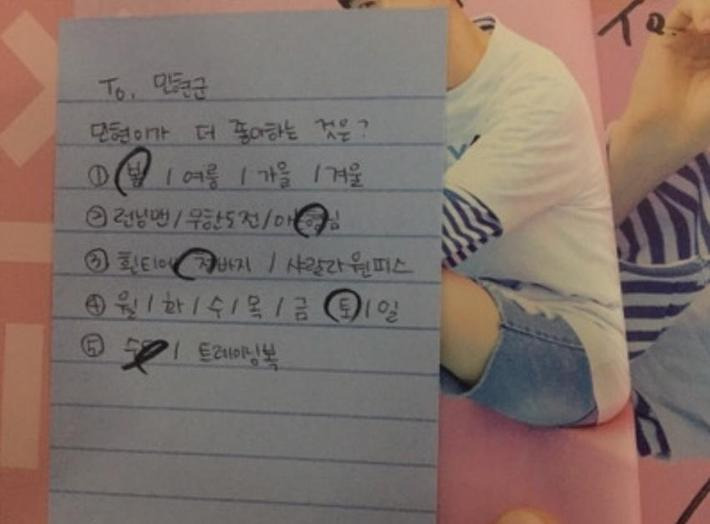 To.
To. 민현군
민현이가 더 좋아하는 것은?
① 봄 / 여름 / 가을 / 겨울
② 런닝맨 / 무한도전 / 아형님
③ 흰티에 청바지 / 샤랄라 원피스
④ 월 / 화 / 수 / 목 / 금 / 토 / 일
⑤ / 트레이닝복